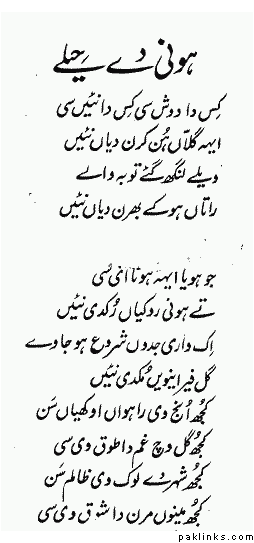 ہونی دے حیلے
کس دا دوش سی کس دا نئیں سی
ایہہ گلّاں ہُن کرن دیاں نئیں
ویلے لنگھ گئے توبہ والے
راتاں ہوکے بھرن دیاں نئیں
جو ہویا ایہہ ہونا ای سی
تے ہونی روکیاں رُکدی نئیں
اِک واری جدوں شروع ہو جاوے
گل فیر اینویں مُکدی نئیں
کُجھ اُنج وی راہواں اوکھیاں سَن
کُجھ گل وچ غم دا طوق وی سی
کُجھ شہر دے لوک وی ظالم سَن
کُجھ مینوں مرن دا شوق وی سی
paklinks.com